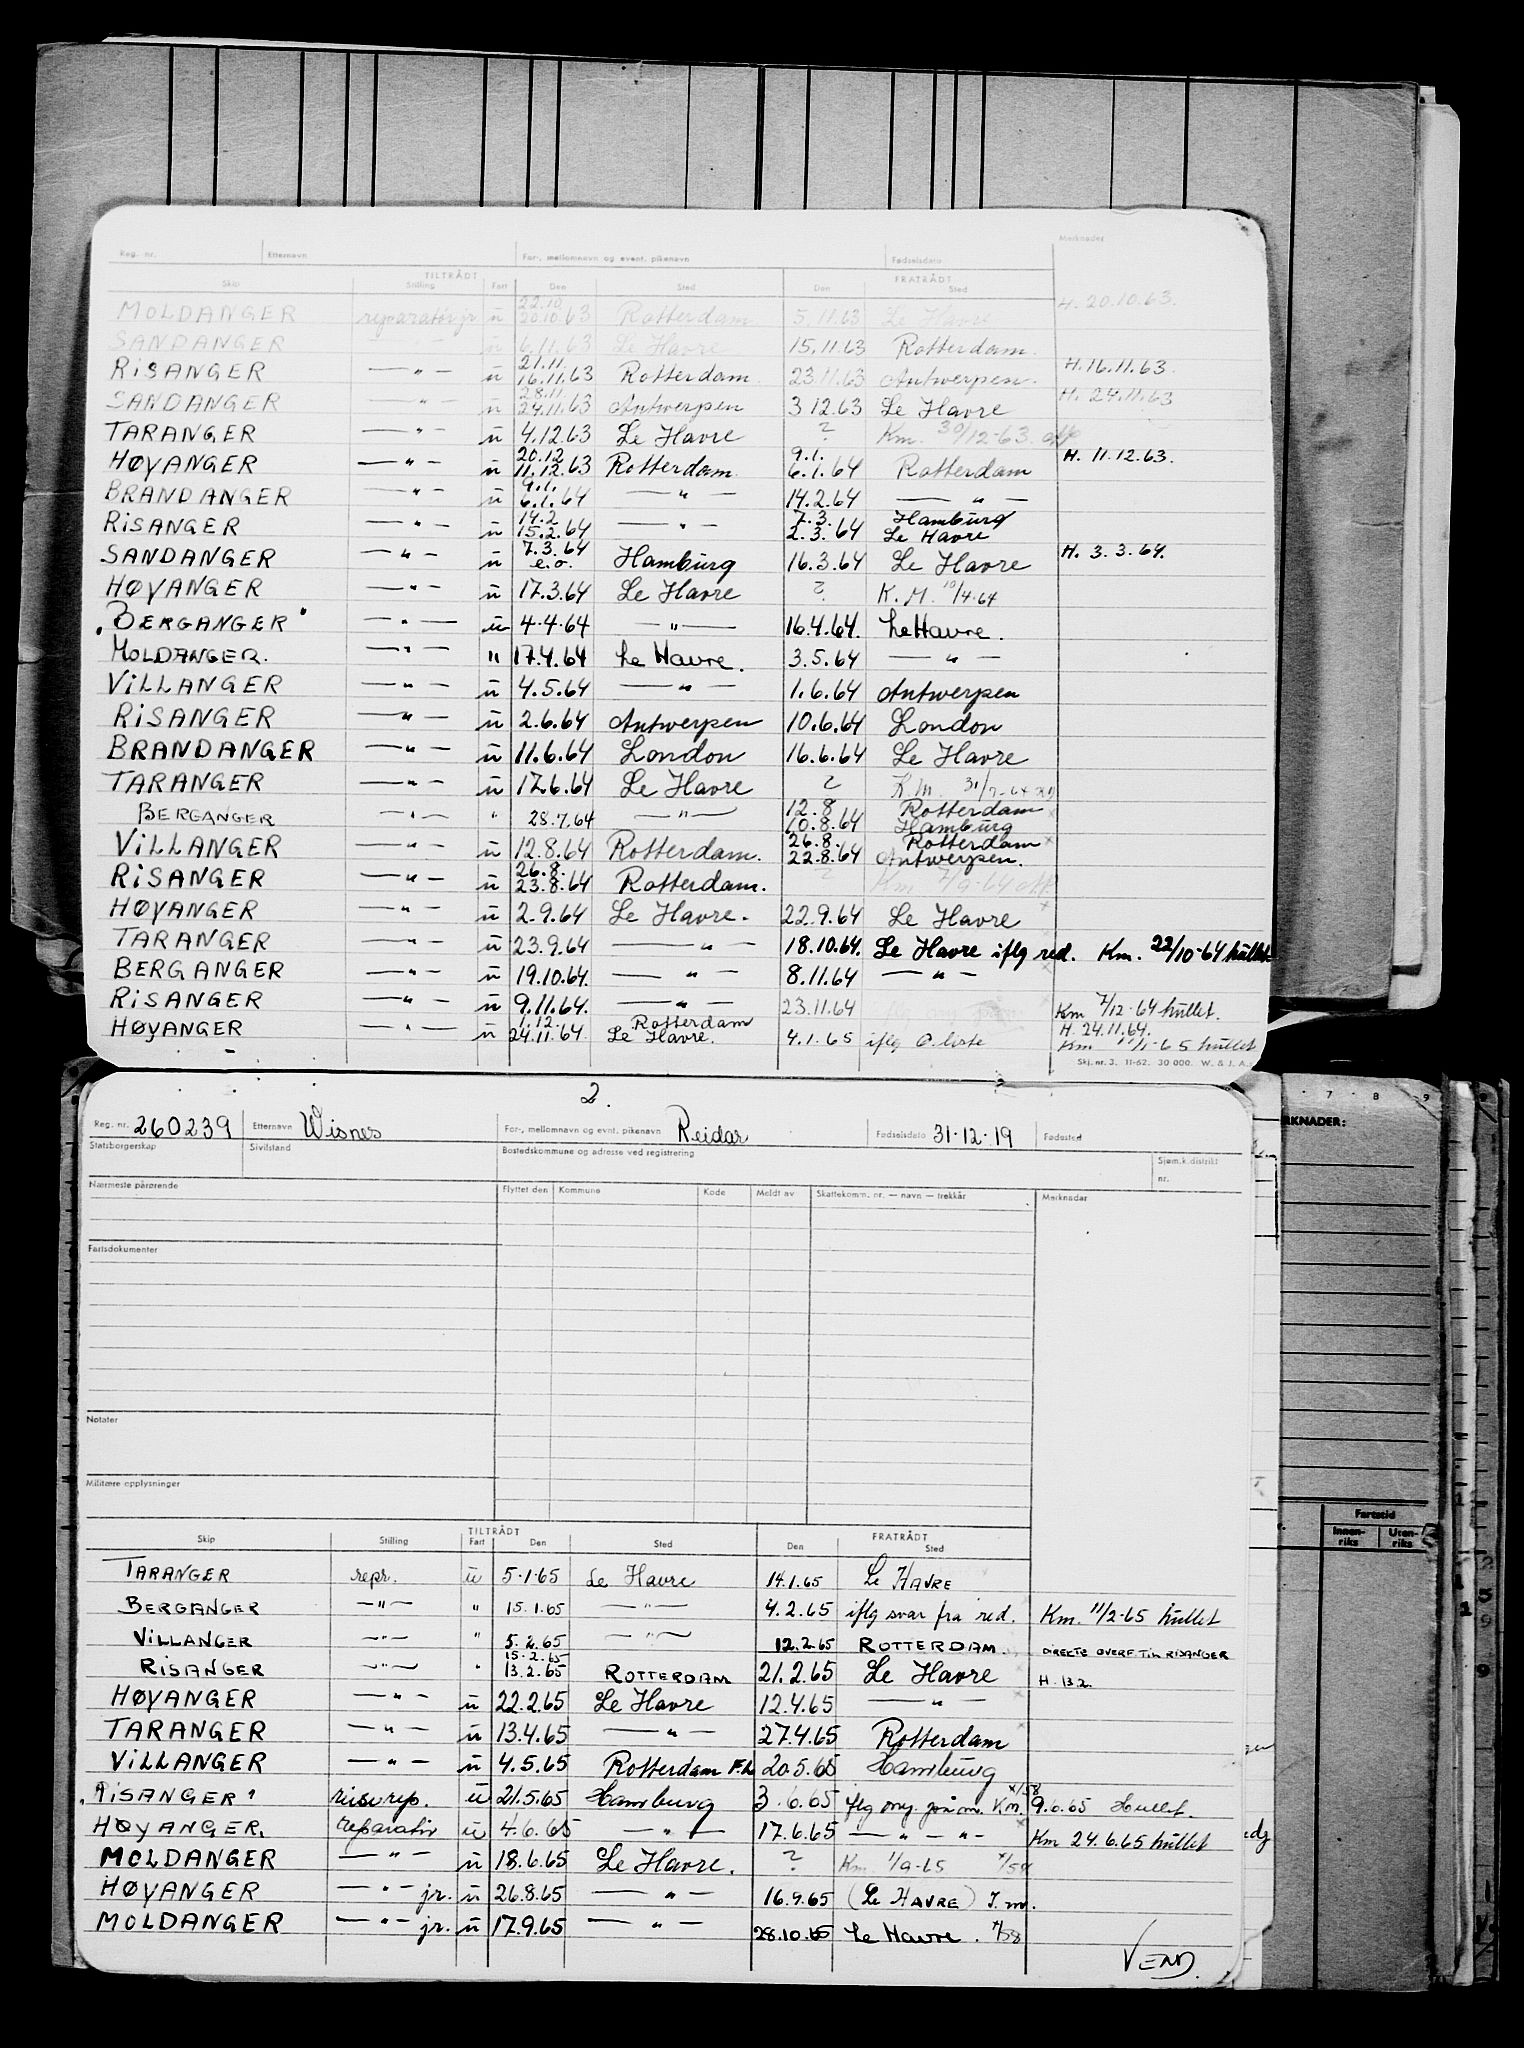 Reg. nr. Etternavn For-, mellomnavn og event. pikenavn Fødselsdato Merknader
TILTRÅDT FRATRÅDT
Skip Stilling Fart Den Sted Den Sted
MOLDANGER reparatør jr ū 22.10 20.10.63 Rotterdam 5.11.63 Le Havre H. 20.10.63.
SANDANGER ū 6.11.63 Le Havre 15.11.63 Rotterdam.
RISANGER — " — ū 21.11. 16.11.63 Rotterdam. 23.11.63 Antwerpen. H. 16.11.63
SANDANGER — " — ū 28.11. 24.11.63 Antwerpen 3 12.63 Le Havre H. 24.11.63
TARANGER — " — ū 4.12.63 Le Havre ? Km. 30/12-63.
HØYANGER — " — ū 20.12 11.12.63 Rotterdam 9.1. 6.1.64 Rotterdam H. 11.12.63.
BRANDANGER — " — ū 9.1. 6.1.64 — " — 14.2.64 — " —
RISANGER — " — ū 14.2 15.2.64 — " — 7.3. 2.3.64 Hamburg Le Havre
SANDANGER — " — ū 7.3.64 e.o. Hamburg 16.3.64 Le Havre H. 3.3.64.
HØYANGER — " — ū 17.3.64 Le Havre ? K.M. 10/4.64
"BERGANGER" — " — ū 4.4.64 — " — 16.4.64. Le Havre.
MOLDANGER. — " — " 17.4.64 Le Havre. 3.5.64 — " —
VILLANGER — " — ū 4.5.64 — " — 1.6.64 Antwerpen
RISANGER — " — ū 2.6.64 Antwerpen 10.6.64 London
BRANDANGER — " — ū 11.6.64 London 16.6.64 Le Havre
TARANGER — " — ū 17.6.64 Le Havre ? K.M. 31/7-64
BERGANGER — " — " 28.7.64 — " — 12.8 10.8.64 Rotterdam Hamburg
VILLANGER — " — ū 12.8.64 Rotterdam. 26.8. 22.8.64 Rotterdam Antwerpen.
RISANGER — " — ū 26.8. 23.8.64 Rotterdam. ? Km 7/9-64
HØYANGER — " — ū 2.9.64 Le Havre. 22.9.64 Le Havre
TARANGER — " — ū 23.9.64 — " — 18.10.64. Le Havre iflg red. Km. 22/10-64 hullet.
BERGANGER — " — ū 19.10.64. — " — 8.11.64 — " —
RISANGER — " — ū 9.11.64. — " — 23.11.64 Km 7/12-64 hullet.
HØYANGER — " — ū 1.12. 24.11.64 Rotterdam Le Havre. 4.1.65 iflg O.liste H. 24.11.64. Km 11/1-65 hullet
Skj. nr. 3. 11-62. 30 000. W. & J. A.
2.
Reg. nr. 260239 Etternavn Wisnes For-, mellomnavn og evnt. pikenavn Reidar Fødselsdato 31-12-19 Fødested
Statsborgerskap Sivilstand Bostedskommune og adresse ved registrering Sjøm.k.distrikt nr.
Nærmeste pårørende Flyttet den Kommune Kode Meldt av Skattekomm. nr. — navn — trekkår Merknader
Fartsdokumenter
Notater
Militære opplysninger
TILTRÅDT FRATRÅDT
Skip Stilling Fart Den Sted Den Sted
TARANGER repr. ū 5.1.65 Le Havre 14.1.65 Le HAVRE
BERGANGER — " — " 15.1.65 — " — 4.2.65 iflg svar fra red. Km. 11/2-65 hullet
VILLANGER — " — " 5.2.65 — " — 12.2.65 ROTTERDAM. DIREKTE OVERF. TIL RISANGER
RISANGER — " — " 15.2.65 13.2.65 ROTTERDAM 21.2.65 Le Havre H. 13.2.
HØYANGER — " — ū 22.2.65 Le Havre 12.4.65 — " —
TARANGER — " — ū 13.4.65 — " — 27.4.65 Rotterdam
VILLANGER — " — ū 4.5.65 Rotterdam 20.5.65 Hamburg
"RISANGER" ū 21.5.65 Hamburg 3.6.65 Km. 9.6.65 Hullet.
HØYANGER. reparatør ū 4.6.65 — " — 17.6.65 — " — " — Km 24.6.65 hullet
MOLDANGER — " — ū 18.6.65 Le Havre. ? Km 1/9-65 x/58
HØYANGER — " — jr. ū 26.8.65 — " — 16.9.65 (Le HAVRE) J.m.
MOLDANGER — " — jr. ū 17.9.65 — " — 28.10.65 Le Havre. x/58
VEND
7 8 9
RKNADER:
Fartstid
Innenriks Utenriks